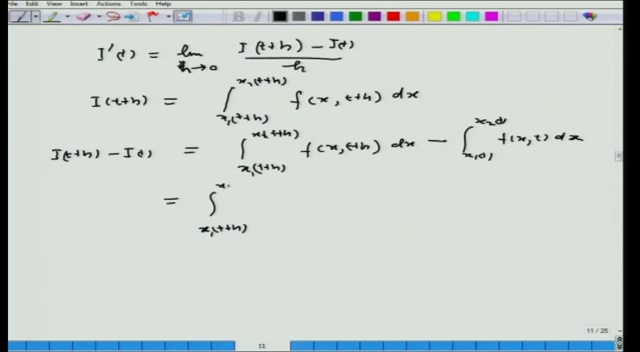 File View Insert Actions Tools Help
I'(t) = lim_{h→0} \frac{I(t+h) - I(t)}{h}
I(t+h) = ∫_{x₁(t+h)}^{x₂(t+h)} f(x, t+h) dx
I(t+h) - I(t) = ∫_{x₁(t+h)}^{x₂(t+h)} f(x, t+h) dx - ∫_{x₁(t)}^{x₂(t)} f(x, t) dx
= ∫_{x₁(t+h)}^{x}
11 / 25
11